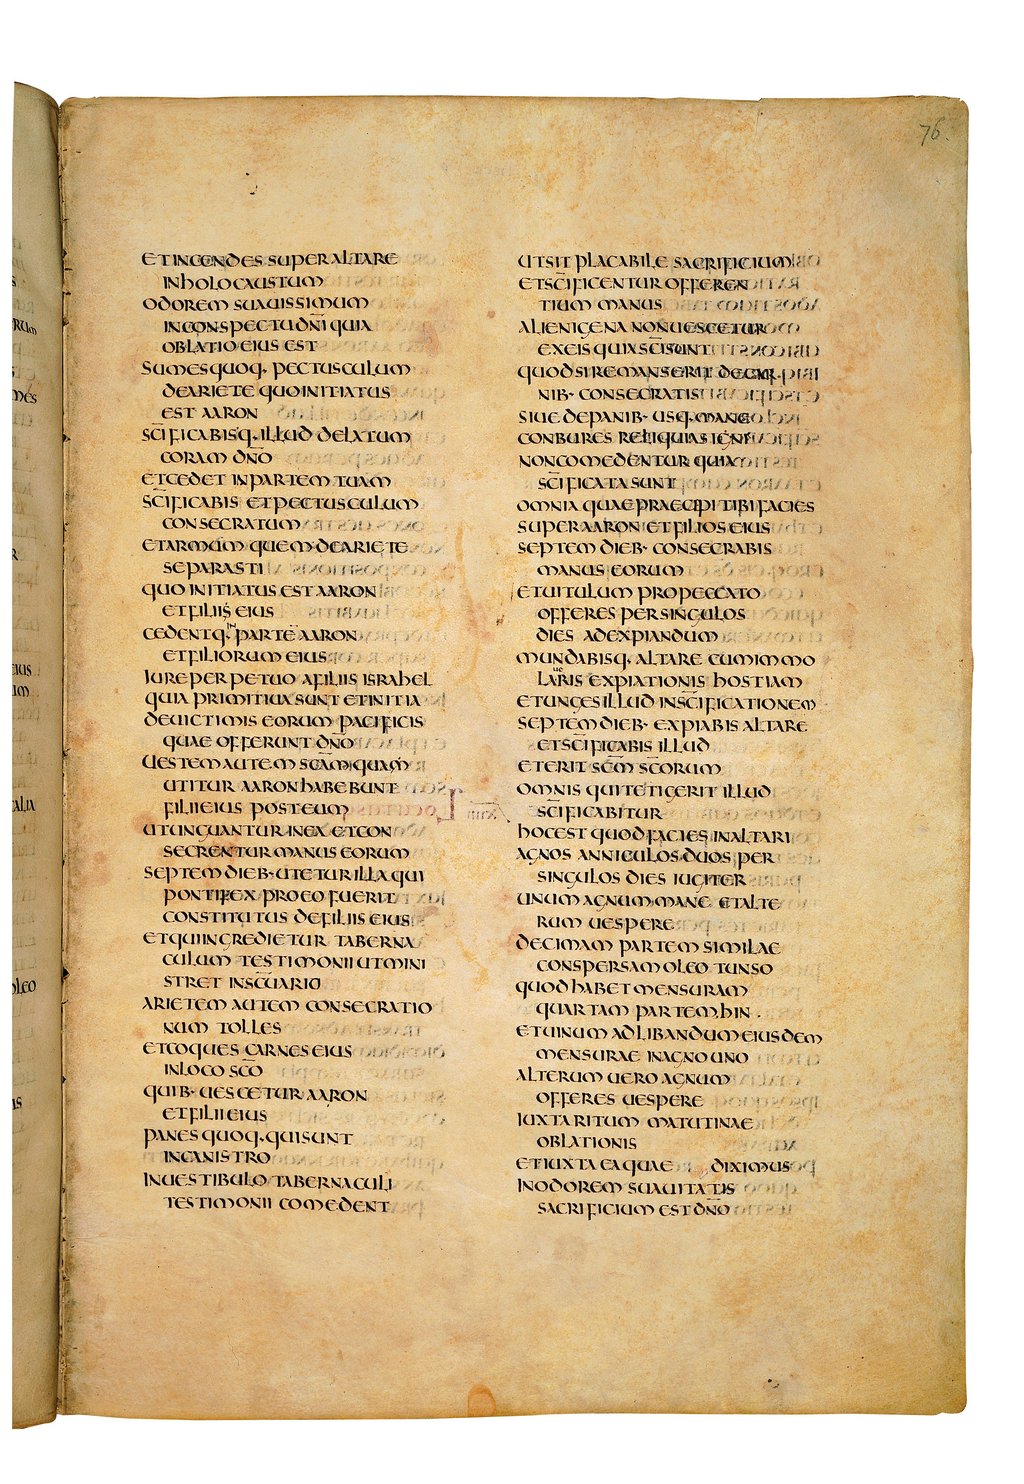 76.
ET INCENDES SUPER ALTARE
IN HOLOCAUSTUM
ODOREM SUAUISSIMUM
IN CONSPECTU DNI QUIA
OBLATIO EIUS EST
SUMES QUOQ· PECTUSCULUM
DE ARIETE QUO INITIATUS
EST AARON
SCIFICABISQ· ILLUD DELATUM
CORAM DNO
ET CEDET IN PARTEM TUAM
SCIFICABIS ET PECTUSCULUM
CONSECRATUM
ET ARMUM QUEM DE ARIETE
SEPARASTI
QUO INITIATUS EST AARON
ET FILIIS EIUS
CEDENTQ· IN PARTE AARON
ET FILIORUM EIUS
IURE PERPETUO A FILIIS ISRAHEL
QUIA PRIMITIUA SUNT ET INITIA
DE UICTIMIS EORUM PACIFICIS
QUAE OFFERUNT DNO
UESTEM AUTEM SCAM QUAM
UTITUR AARON HABEBUNT
FILII EIUS POST EUM
UT UNGUANTUR IN EA ET CON
SECRENTUR MANUS EORUM
SEPTEM DIEB· UTETUR ILLA QUI
PONTIFEX PRO EO FUERIT
CONSTITUTUS DE FILIIS EIUS
ET QUI INGREDIETUR TABERNA
CULUM TESTIMONII UT MINI
STRET IN SCUARIO
ARIETEM AUTEM CONSECRATIO
NUM TOLLES
ET COQUES CARNES EIUS
IN LOCO SCO
QUIB· UESCETUR AARON
ET FILII EIUS
PANES QUOQ· QUI SUNT
IN CANISTRO
IN UESTIBULO TABERNACULI
TESTIMONII COMEDENT
UT SIT PLACABILE SACRIFICIUM
ET SCIFICENTUR OFFEREN
TIUM MANUS
ALIENIGENA NON UESCETUR
EX EIS QUIA SCI SUNT
QUOD SI REMANSERIT DE CAR
NIB· CONSECRATIS
SIUE DE PANIB· USQ· MANE
CONBURES RELIQUIAS IGNI
NON COMEDENTUR QUIA
SCIFICATA SUNT
OMNIA QUAE PRAECIPI TIBI FACIES
SUPER AARON ET FILIOS EIUS
SEPTEM DIEB· CONSECRABIS
MANUS EORUM
ET UITULUM PRO PECCATO
OFFERES PER SINGULOS
DIES AD EXPIANDUM
MUNDABISQ· ALTARE CUM IMMO
LAUERIS EXPIATIONIS HOSTIAM
ET UNGES ILLUD IN SCIFICATIONEM
SEPTEM DIEB· EXPIABIS ALTARE
ET SCIFICABIS ILLUD
ET ERIT SCM SCORUM
OMNIS QUI TETIGERIT ILLUD
SCIFICABITUR
HOC EST QUOD FACIES IN ALTARI
AGNOS ANNICULOS DUOS PER
SINGULOS DIES IUGITER
UNUM AGNUM MANE ET ALTE
RUM UESPERE
DECIMAM PARTEM SIMILAE
CONSPERSAM OLEO TUNSO
QUOD HABET MENSURAM
QUARTAM PARTEM HIN
ET UINUM AD LIBANDUM EIUSDEM
MENSURAE IN AGNO UNO
ALTERUM UERO AGNUM
OFFERES UESPERE
IUXTA RITUM MATUTINAE
OBLATIONIS
ET IUXTA EA QUAE DIXIMUS
IN ODOREM SUAUITATIS
SACRIFICIUM EST DNO